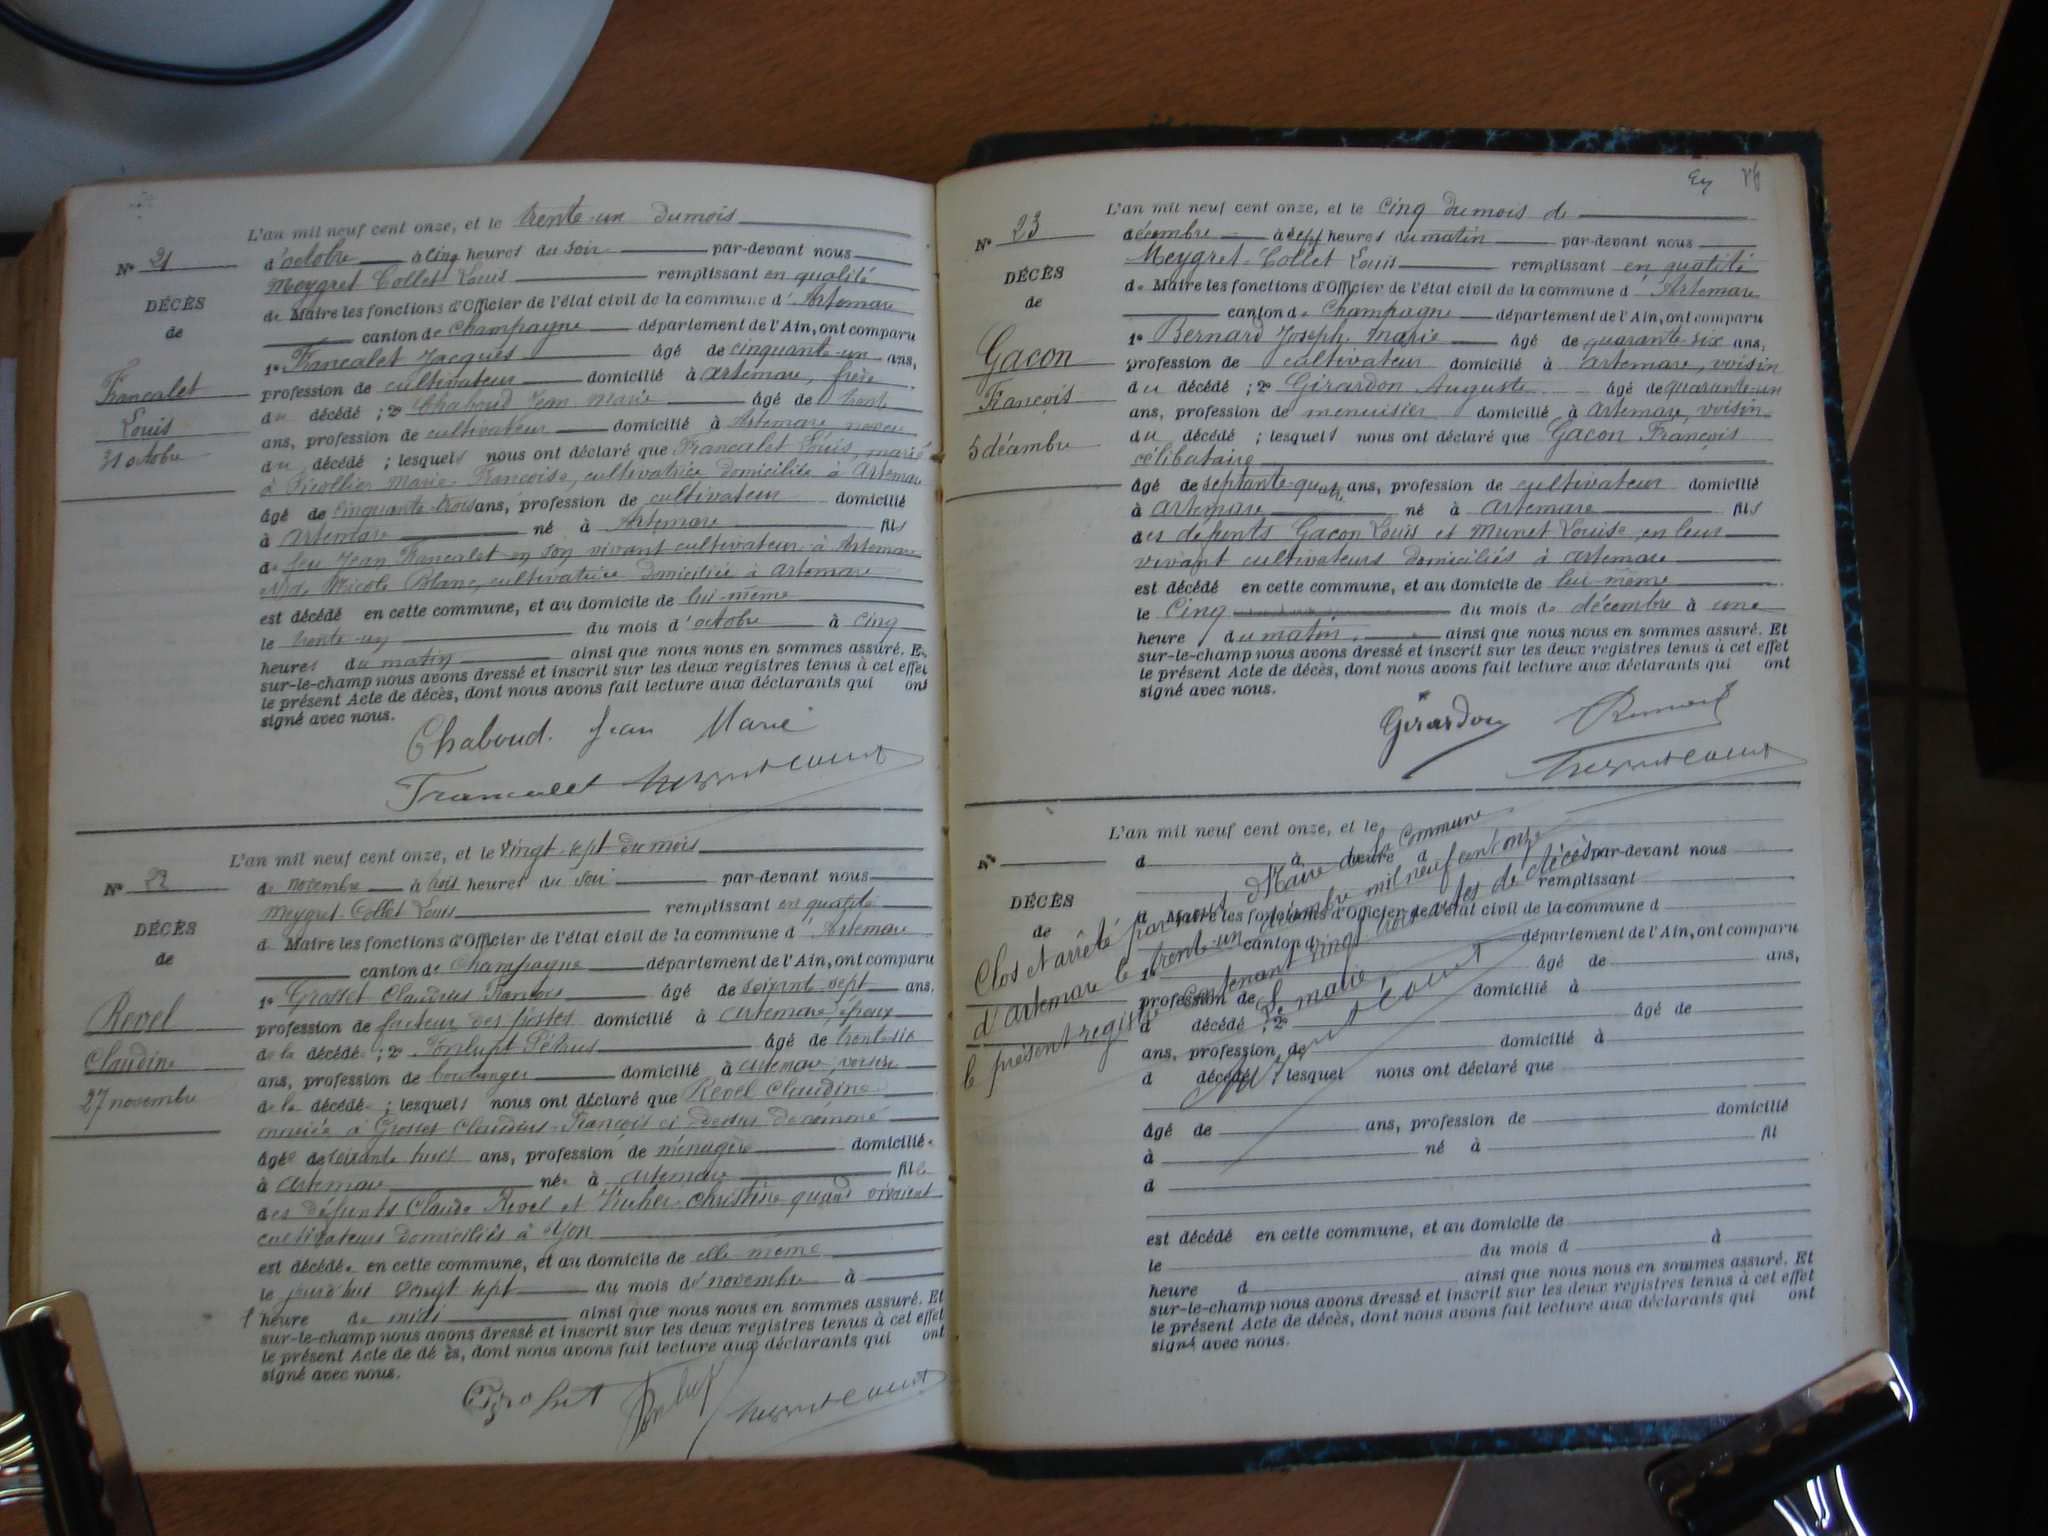 L'an mil neuf cent onze, et le trente-un du mois
N° 21
d'octobre à cinq heures du soir par-devant nous
Meygret-Collet Louis remplissant en qualité
DÉCÈS
de Maire les fonctions d'Officier de l'état civil de la commune d'Artemare
de
canton de Champagne département de l'Ain, ont comparu
1° Francalet Jacques âgé de cinquante-un ans,
Francalet
profession de cultivateur domicilié à Artemare, frère
Louis
du décédé ; 2° Chaboud Jean Marie âgé de trente
31 octobre
ans, profession de cultivateur domicilié à Artemare, neveu
du décédé ; lesquels nous ont déclaré que Francalet Louis, marié
à Marie Françoise, cultivatrice domiciliée à Artemare
âgé de cinquante-trois ans, profession de cultivateur domicilié
à Artemare né à Artemare fils
de feu Jean Francalet en son vivant cultivateur à Artemare
et de Nicole Blanc, cultivatrice domiciliée à Artemare
est décédé en cette commune, et au domicile de lui-même
le trente-un du mois d'octobre à cinq
heures du matin ainsi que nous nous en sommes assuré. Et
sur-le-champ nous avons dressé et inscrit sur les deux registres tenus à cet effet
le présent Acte de décès, dont nous avons fait lecture aux déclarants qui ont
signé avec nous.
Chaboud. Jean Marie
Francalet Meygret Collet
L'an mil neuf cent onze, et le vingt-sept du mois
N° 22
de novembre à trois heures du soir par-devant nous
Meygret-Collet Louis remplissant en qualité
DÉCÈS
de Maire les fonctions d'Officier de l'état civil de la commune d'Artemare
de
canton de Champagne département de l'Ain, ont comparu
1° Grosset Claudius François âgé de soixante-sept ans,
Revel
profession de facteur des postes domicilié à Artemare, époux
Claudine
de la décédée ; 2° Ponlupt Pétrus âgé de trente-six
27 novembre
ans, profession de boulanger domicilié à Artemare, voisin
de la décédée ; lesquels nous ont déclaré que Revel Claudine
mariée à Grosset Claudius-François ci dessus dénommé
âgée de soixante trois ans, profession de ménagère domiciliée
à Artemare née à Artemare fille
des défunts Claude Revel et Christine quand vivaient
cultivateurs domiciliés à Yon
est décédée en cette commune, et au domicile de elle-même
le jourd'hui vingt sept du mois de novembre à
1 heure de midi ainsi que nous nous en sommes assuré. Et
sur-le-champ nous avons dressé et inscrit sur les deux registres tenus à cet effet
le présent Acte de décès, dont nous avons fait lecture aux déclarants qui ont
signé avec nous.
Grosset Ponlupt Meygret Collet
L'an mil neuf cent onze, et le cinq du mois de
N° 23
décembre à sept heures du matin par-devant nous
Meygret-Collet Louis remplissant en qualité
DÉCÈS
de Maire les fonctions d'Officier de l'état civil de la commune d'Artemare
de
canton de Champagne département de l'Ain, ont comparu
1° Bernard Joseph-Marie âgé de quarante-six ans,
Gacon
profession de cultivateur domicilié à Artemare, voisin
François
du décédé ; 2° Girardon Auguste âgé de quarante-un
ans, profession de menuisier domicilié à Artemare, voisin
5 décembre
du décédé ; lesquels nous ont déclaré que Gacon François
célibataire
âgé de septante-quatre ans, profession de cultivateur domicilié
à Artemare né à Artemare fils
des défunts Gacon Louis et Munet Louise, en leur
vivant cultivateurs domiciliés à Artemare
est décédé en cette commune, et au domicile de lui-même
le cinq du mois de décembre à une
heure du matin. ainsi que nous nous en sommes assuré. Et
sur-le-champ nous avons dressé et inscrit sur les deux registres tenus à cet effet
le présent Acte de décès, dont nous avons fait lecture aux déclarants qui ont
signé avec nous.
Girardon Bernard
Meygret Collet
L'an mil neuf cent onze, et le
N°
d à heure d par-devant nous
remplissant
DÉCÈS
d Maire les fonctions d'Officier de l'état civil de la commune d
de
canton d département de l'Ain, ont comparu
1° âgé de ans,
profession de domicilié à
d décédé ; 2° âgé de
ans, profession de domicilié à
d décédé ; lesquel nous ont déclaré que
âgé de ans, profession de domicilié
à né à fil
d
est décédé en cette commune, et au domicile de
le du mois d à
heure d ainsi que nous nous en sommes assuré. Et
sur-le-champ nous avons dressé et inscrit sur les deux registres tenus à cet effet
le présent Acte de décès, dont nous avons fait lecture aux déclarants qui ont
signé avec nous.
Clos et arrêté par nous Maire de la commune
d'Artemare le trente-un décembre mil neuf cent onze
le présent registre contenant vingt trois actes de décès
Le maire,
Meygret Collet